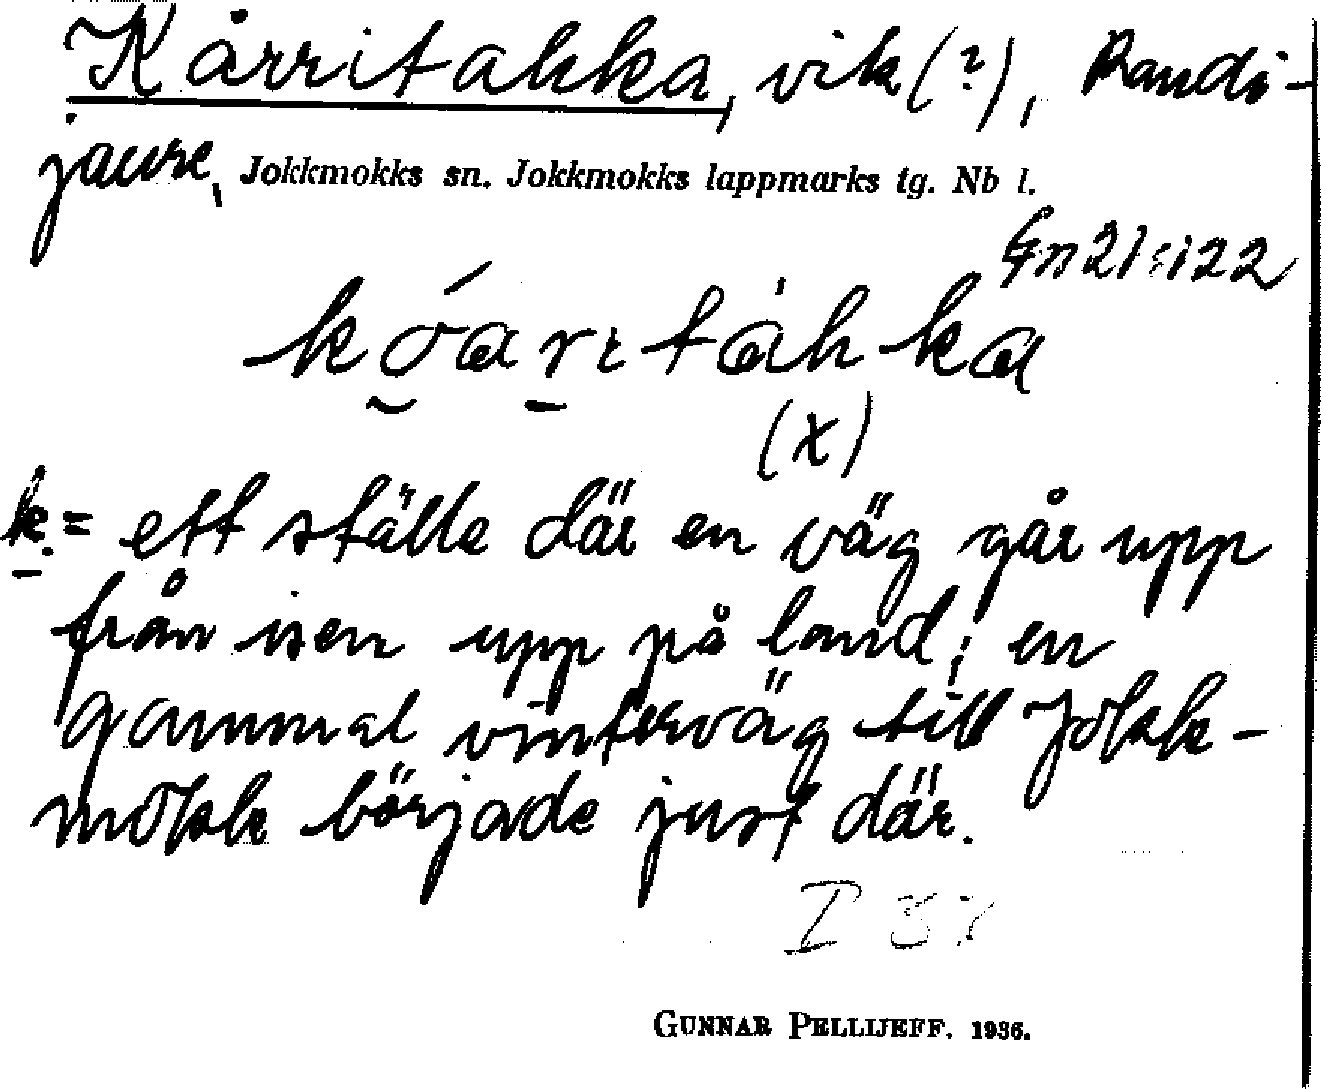 Kårritakka, vik(?), Randi-
jaure, Jokkmokks sn. Jokkmokks lappmarks tg. Nb l.
Gn 21:122
kǫ́arıtáhka
(x)
k. = ett ställe där en väg går upp
från isen upp på land; en
gammal vinterväg till Jokk-
mokk började just där.
I 37
GUNNAR PELLIJEFF. 1936.